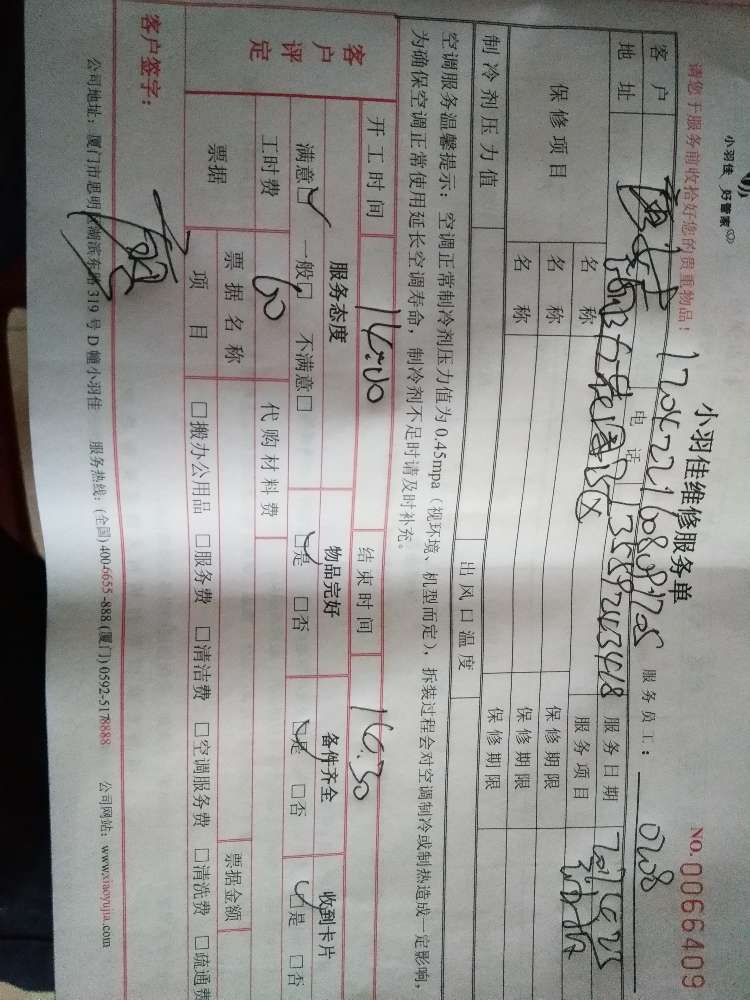 小羽佳 好管家
小羽佳维修服务单
NO.0066409
请您于服务前收拾好您的贵重物品!
服务员工:
客户 电话 服务日期
地址 服务项目
保修项目 名称 保修期限
名称 保修期限
名称 保修期限
制冷剂压力值 出风口温度
空调服务温馨提示: 空调正常制冷剂压力值为0.45mpa (视环境、机型而定), 拆装过程会对空调制冷或制热造成一定影响,
为确保空调正常使用延长空调寿命, 制冷剂不足时请及时补充。
开工时间 16:00 结束时间 16:30
客户评定 服务态度 物品完好 备件齐全 收到卡片
满意□ 一般□ 不满意□ □是 □否 □是 □否 □是 □否
工时费 60 代购材料费
票据 票据名称 票据金额
项目 □搬办公用品 □服务费 □清洁费 □空调服务费 □清洗费 □疏通费
客户签字:
公司地址: 厦门市思明区湖滨东路319号D幢小羽佳 服务热线: (全国)4006655-888 (厦门)0592-5178888 公司网站: www.xiaoyujia.com